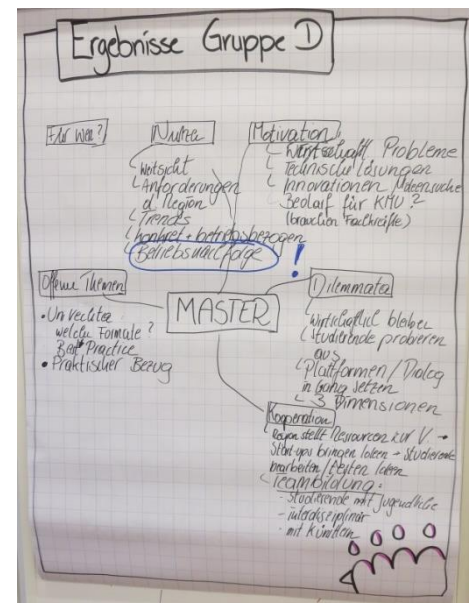 Ergebnisse Gruppe D
Für wen?
Nutzen
Weitsicht
Anforderungen
d. Region
Trends
konkret + betriebsbezogen
Betriebsnachfolge
!
Motivation
Wirtschaftl Probleme
Technische Lösungen
Innovationen Ideensuche
Bedarf für KMU?
(brauchen Fachkräfte)
Offene Themen
• 
welche Formate?
Best Practice
• Praktischer Bezug
MASTER
Dilemmata
Wirtschaftlich bleiben
Studierende probieren
aus
Plattformen / Dialog
in Gang setzen
3 Dimensionen
Kooperation
Region stellt Ressourcen zur V. →
Start-ups bringen Ideen → Studierende
bearbeiten / testen Ideen
Teambildung:
- Studierende mit Jugendliche
- interdisziplinär
- mit Künstlern